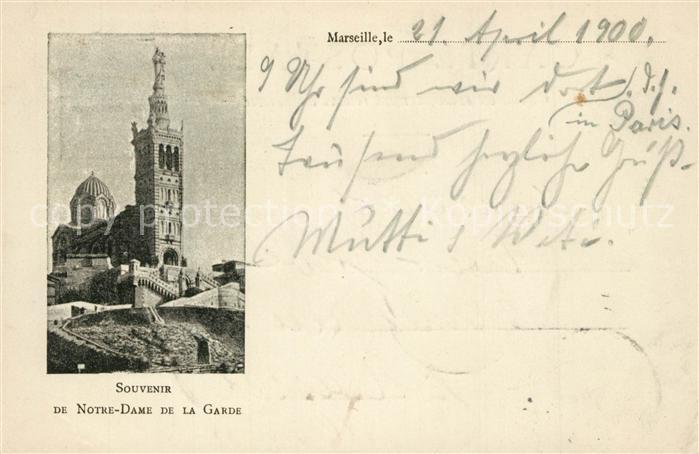 Marseille, le 21. April 1900.
9 Uhr sind wir dort, d. h.
in Paris.
Tausend herzliche Grüße
Mutti &
SOUVENIR
DE NOTRE-DAME DE LA GARDE
copyright protection · Kopierschutz